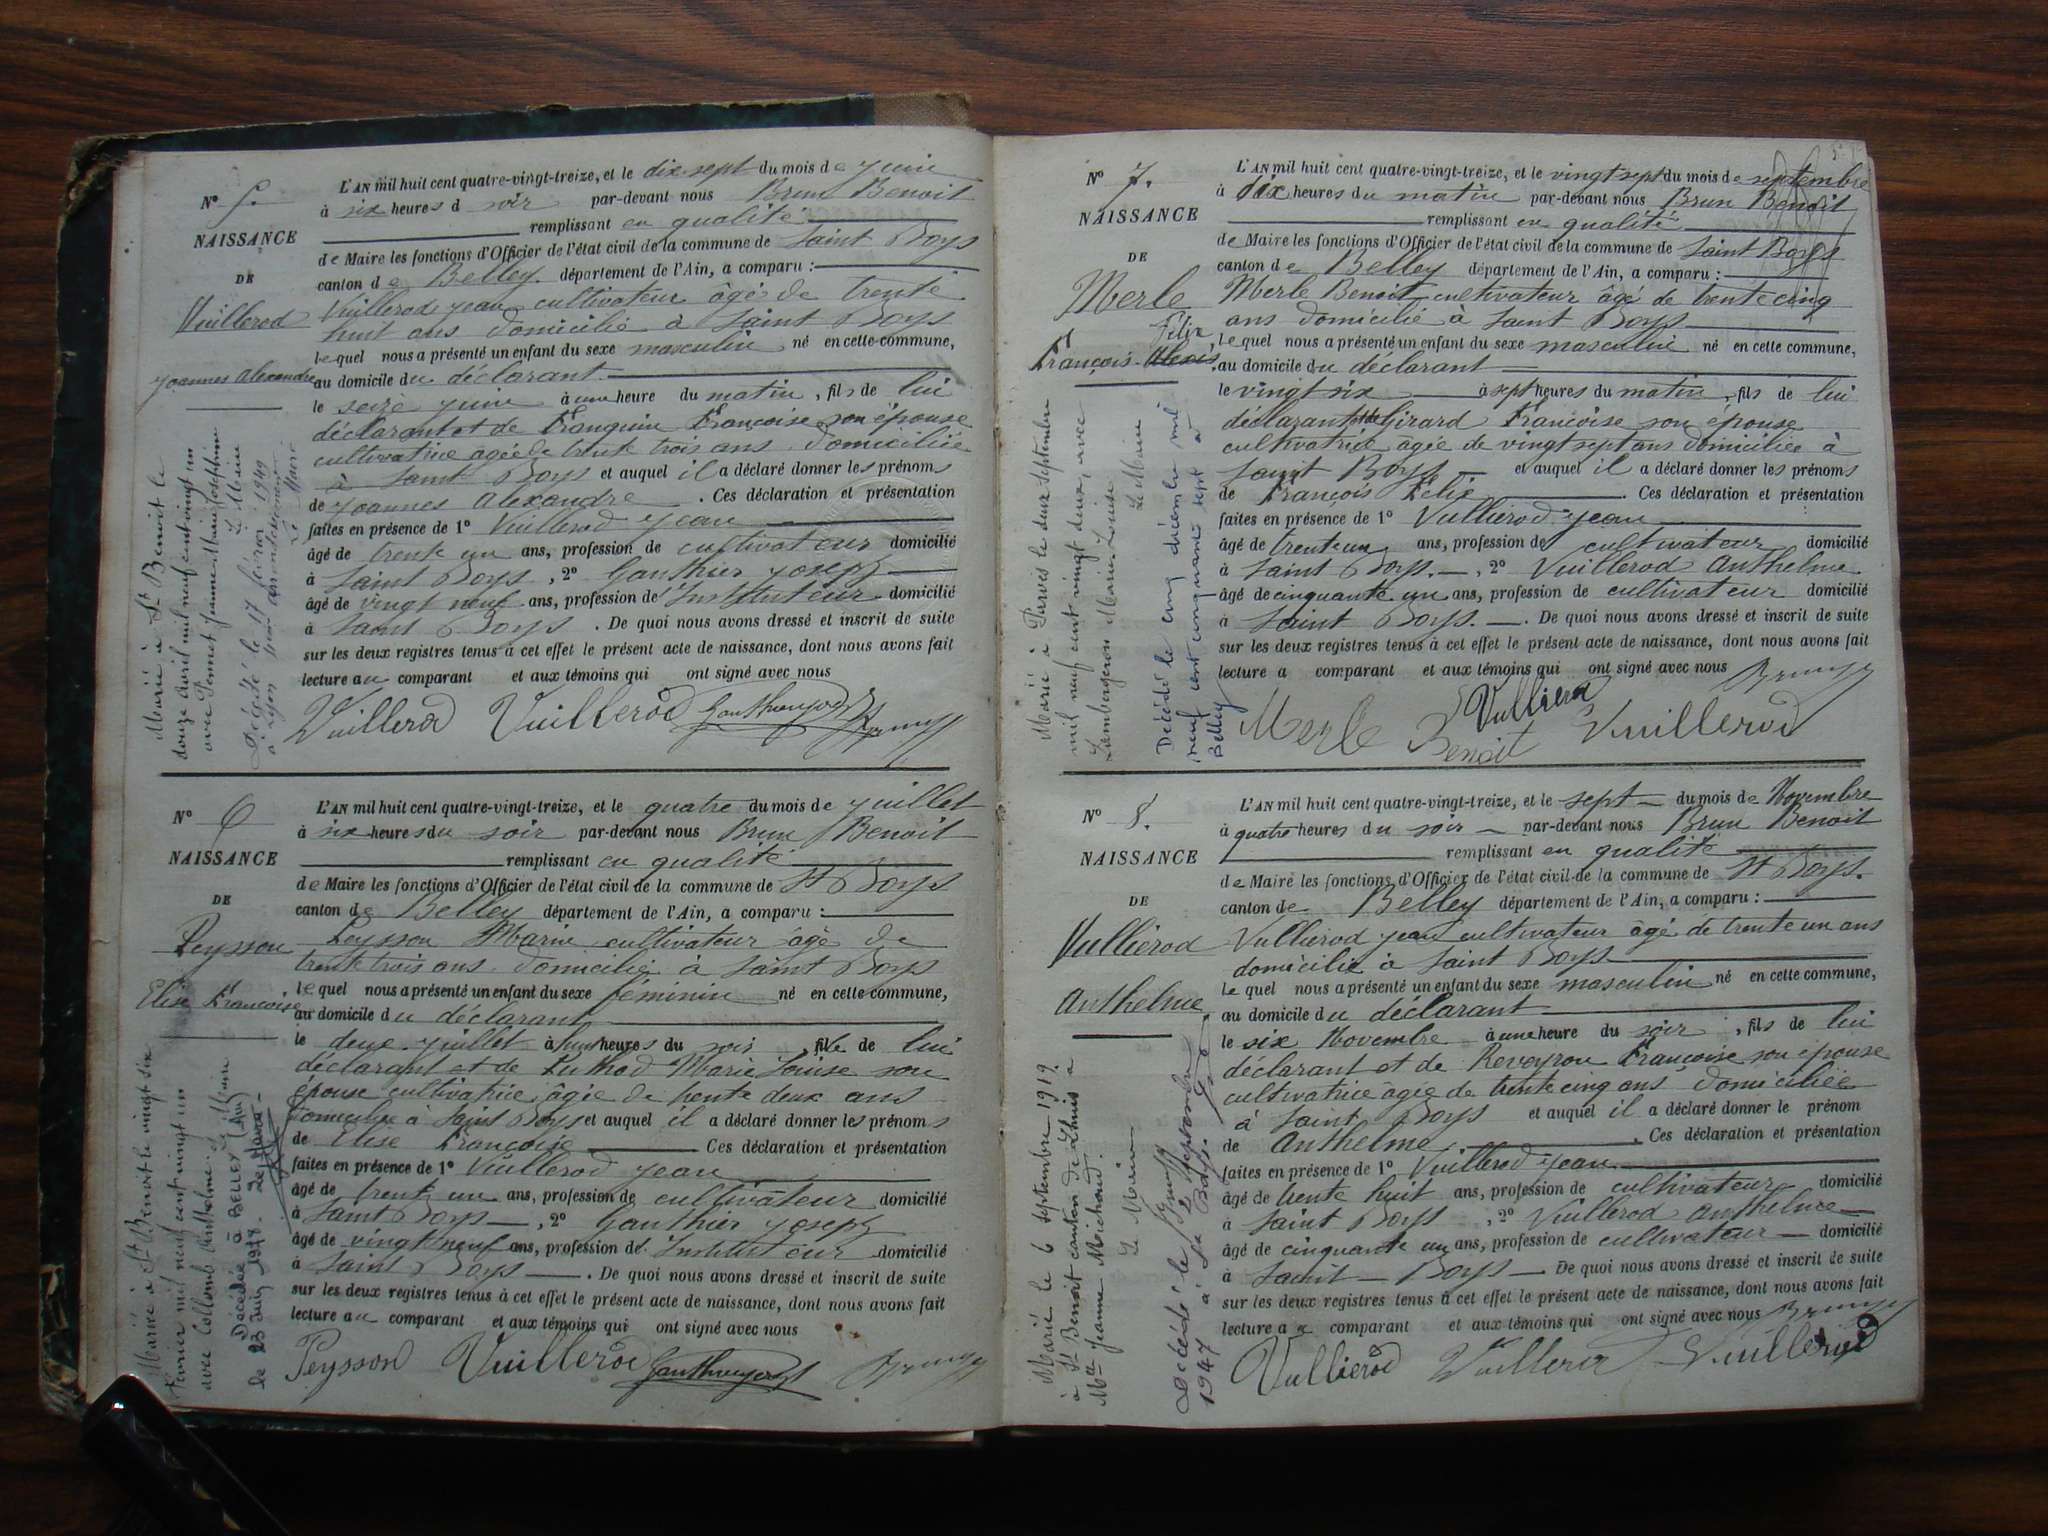 N° 5.
NAISSANCE
DE
Vuillerod
Joannes Alexandre
L'AN mil huit cent quatre-vingt-treize, et le dix sept du mois de juin
à six heures d soir par-devant nous Brun Benoit
remplissant en qualité
de Maire les fonctions d'Officier de l'état civil de la commune de Saint Boys
canton de Belley département de l'Ain, a comparu :
Vuillerod Jean cultivateur âgé de trente
huit ans domicilié à Saint Boys
lequel nous a présenté un enfant du sexe masculin né en cette commune,
au domicile du déclarant
le seize juin à une heure du matin, fils de lui
déclarant et de Franquin Françoise son épouse
cultivatrice agée de trente trois ans domiciliée
à Saint Boys et auquel il a déclaré donner les prénoms
de Joannes Alexandre. Ces déclaration et présentation
faites en présence de 1° Vuillerod Jean
âgé de trente un ans, profession de cultivateur domicilié
à Saint Boys, 2° Gauthier Joseph
âgé de vingt neuf ans, profession de Instituteur domicilié
à Saint Boys. De quoi nous avons dressé et inscrit de suite
sur les deux registres tenus à cet effet le présent acte de naissance, dont nous avons fait
lecture au comparant et aux témoins qui ont signé avec nous
Vuillerod Vuillerod
Marié à St Benoit le
douze avril mil neuf cent vingt un
avec Pennet Jeanne Marie Josephine
Le Maire
Décédé le 17 février 1949
à Lyon
Le Maire
N° 6
NAISSANCE
DE
Peysson
Elise Françoise
L'AN mil huit cent quatre-vingt-treize, et le quatre du mois de juillet
à six heures du soir par-devant nous Brun Benoit
remplissant en qualité
de Maire les fonctions d'Officier de l'état civil de la commune de St Boys
canton de Belley département de l'Ain, a comparu :
Peysson Marin cultivateur âgé de
trente trois ans domicilié à Saint Boys
lequel nous a présenté un enfant du sexe féminin né en cette commune,
au domicile du déclarant
le deux juillet à heures du soir, fille de lui
déclarant et de Marie Louise son
épouse cultivatrice âgée de trente deux ans
domiciliée à Saint Boys et auquel il a déclaré donner les prénoms
de Elise Françoise Ces déclaration et présentation
faites en présence de 1° Vuillerod Jean
âgé de trente un ans, profession de cultivateur domicilié
à Saint Boys, 2° Gauthier Joseph
âgé de vingt neuf ans, profession de Instituteur domicilié
à Saint Boys. De quoi nous avons dressé et inscrit de suite
sur les deux registres tenus à cet effet le présent acte de naissance, dont nous avons fait
lecture au comparant et aux témoins qui ont signé avec nous
Peysson Vuillerod
Mariée à St Benoit le vingt six
février mil neuf cent vingt un
avec Collomb Anthelme. Le Maire
Décédée à BELLEY (Ain)
le 23 Juin 1978. Le Maire
N° 7.
NAISSANCE
DE
Merle
Felix
François Alexis.
L'AN mil huit cent quatre-vingt-treize, et le vingt sept du mois de septembre
à dix heures du matin par-devant nous Brun Benoit
remplissant en qualité
de Maire les fonctions d'Officier de l'état civil de la commune de Saint Boys
canton de Belley département de l'Ain, a comparu :
Merle Benoit cultivateur âgé de trente cinq
ans domicilié à Saint Boys
lequel nous a présenté un enfant du sexe masculin né en cette commune,
au domicile du déclarant
le vingt six à sept heures du matin, fils de lui
déclarant et de Girard Françoise son épouse
cultivatrice agée de vingt sept ans domiciliée à
Saint Boys et auquel il a déclaré donner les prénoms
de François Félix. Ces déclaration et présentation
faites en présence de 1° Vulliérod Jean
âgé de trente un ans, profession de cultivateur domicilié
à Saint Boys., 2° Vuillerod Anthelme
âgé de cinquante un ans, profession de cultivateur domicilié
à Saint Boys. De quoi nous avons dressé et inscrit de suite
sur les deux registres tenus à cet effet le présent acte de naissance, dont nous avons fait
lecture a comparant et aux témoins qui ont signé avec nous
Merle Benoit Vullierod Vuillerod
Marié à Paris le deux septembre
mil neuf cent vingt deux, avec
Lambergeron Marie Louise
Le Maire
Décédé le cinq décembre mil
neuf cent cinquante sept à
Belley
N° 8.
NAISSANCE
DE
Vulliérod
Anthelme
L'AN mil huit cent quatre-vingt-treize, et le sept du mois de Novembre
à quatre heures du soir par-devant nous Brun Benoit
remplissant en qualité
de Maire les fonctions d'Officier de l'état civil de la commune de St Boys.
canton de Belley département de l'Ain, a comparu :
Vulliérod Jean cultivateur âgé de trente un ans
domicilié à Saint Boys
lequel nous a présenté un enfant du sexe masculin né en cette commune,
au domicile du déclarant
le six Novembre à une heure du soir, fils de lui
déclarant et de Reveyron Françoise son épouse
cultivatrice agée de trente cinq ans domiciliée
à Saint Boys et auquel il a déclaré donner le prénom
de Anthelme. Ces déclaration et présentation
faites en présence de 1° Vuillerod Jean
âgé de trente huit ans, profession de cultivateur domicilié
à Saint Boys, 2° Vuillerod Anthelme
âgé de cinquante un ans, profession de cultivateur domicilié
à Saint Boys De quoi nous avons dressé et inscrit de suite
sur les deux registres tenus à cet effet le présent acte de naissance, dont nous avons fait
lecture au comparant et aux témoins qui ont signé avec nous
Vullierod Vuillerod Vuillerod
Marié le 6 septembre 1919
à St Benoit canton de Lhuis à
Melle Jeanne Michoud.
Le Maire
Décédé le 2 septembre
1947 à St Boys.